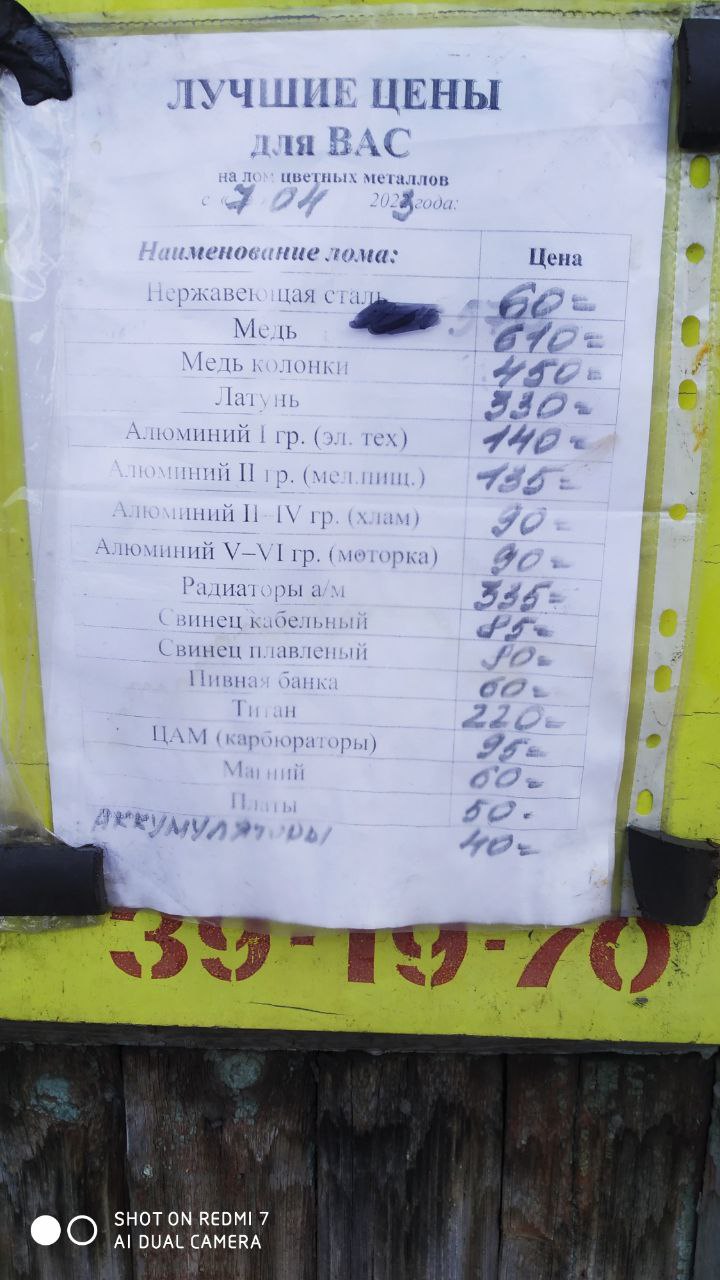 ЛУЧШИЕ ЦЕНЫ
для ВАС
на лом цветных металлов
с «7 04 2023года:
Наименование лома: Цена
Нержавеющая сталь 60=
Медь 610=
Медь колонки 450=
Латунь 330=
Алюминий I гр. (эл. тех) 140=
Алюминий II гр. (мел.пищ.) 135=
Алюминий II–IV гр. (хлам) 90=
Алюминий V–VI гр. (моторка) 90=
Радиаторы а/м 335=
Свинец кабельный 85=
Свинец плавленый 90=
Пивная банка 60=
Титан 220=
ЦАМ (карбюраторы) 95=
Магний 60=
Платы 50.
АККУМУЛЯТОРЫ 40=
39-19-70
SHOT ON REDMI 7
AI DUAL CAMERA